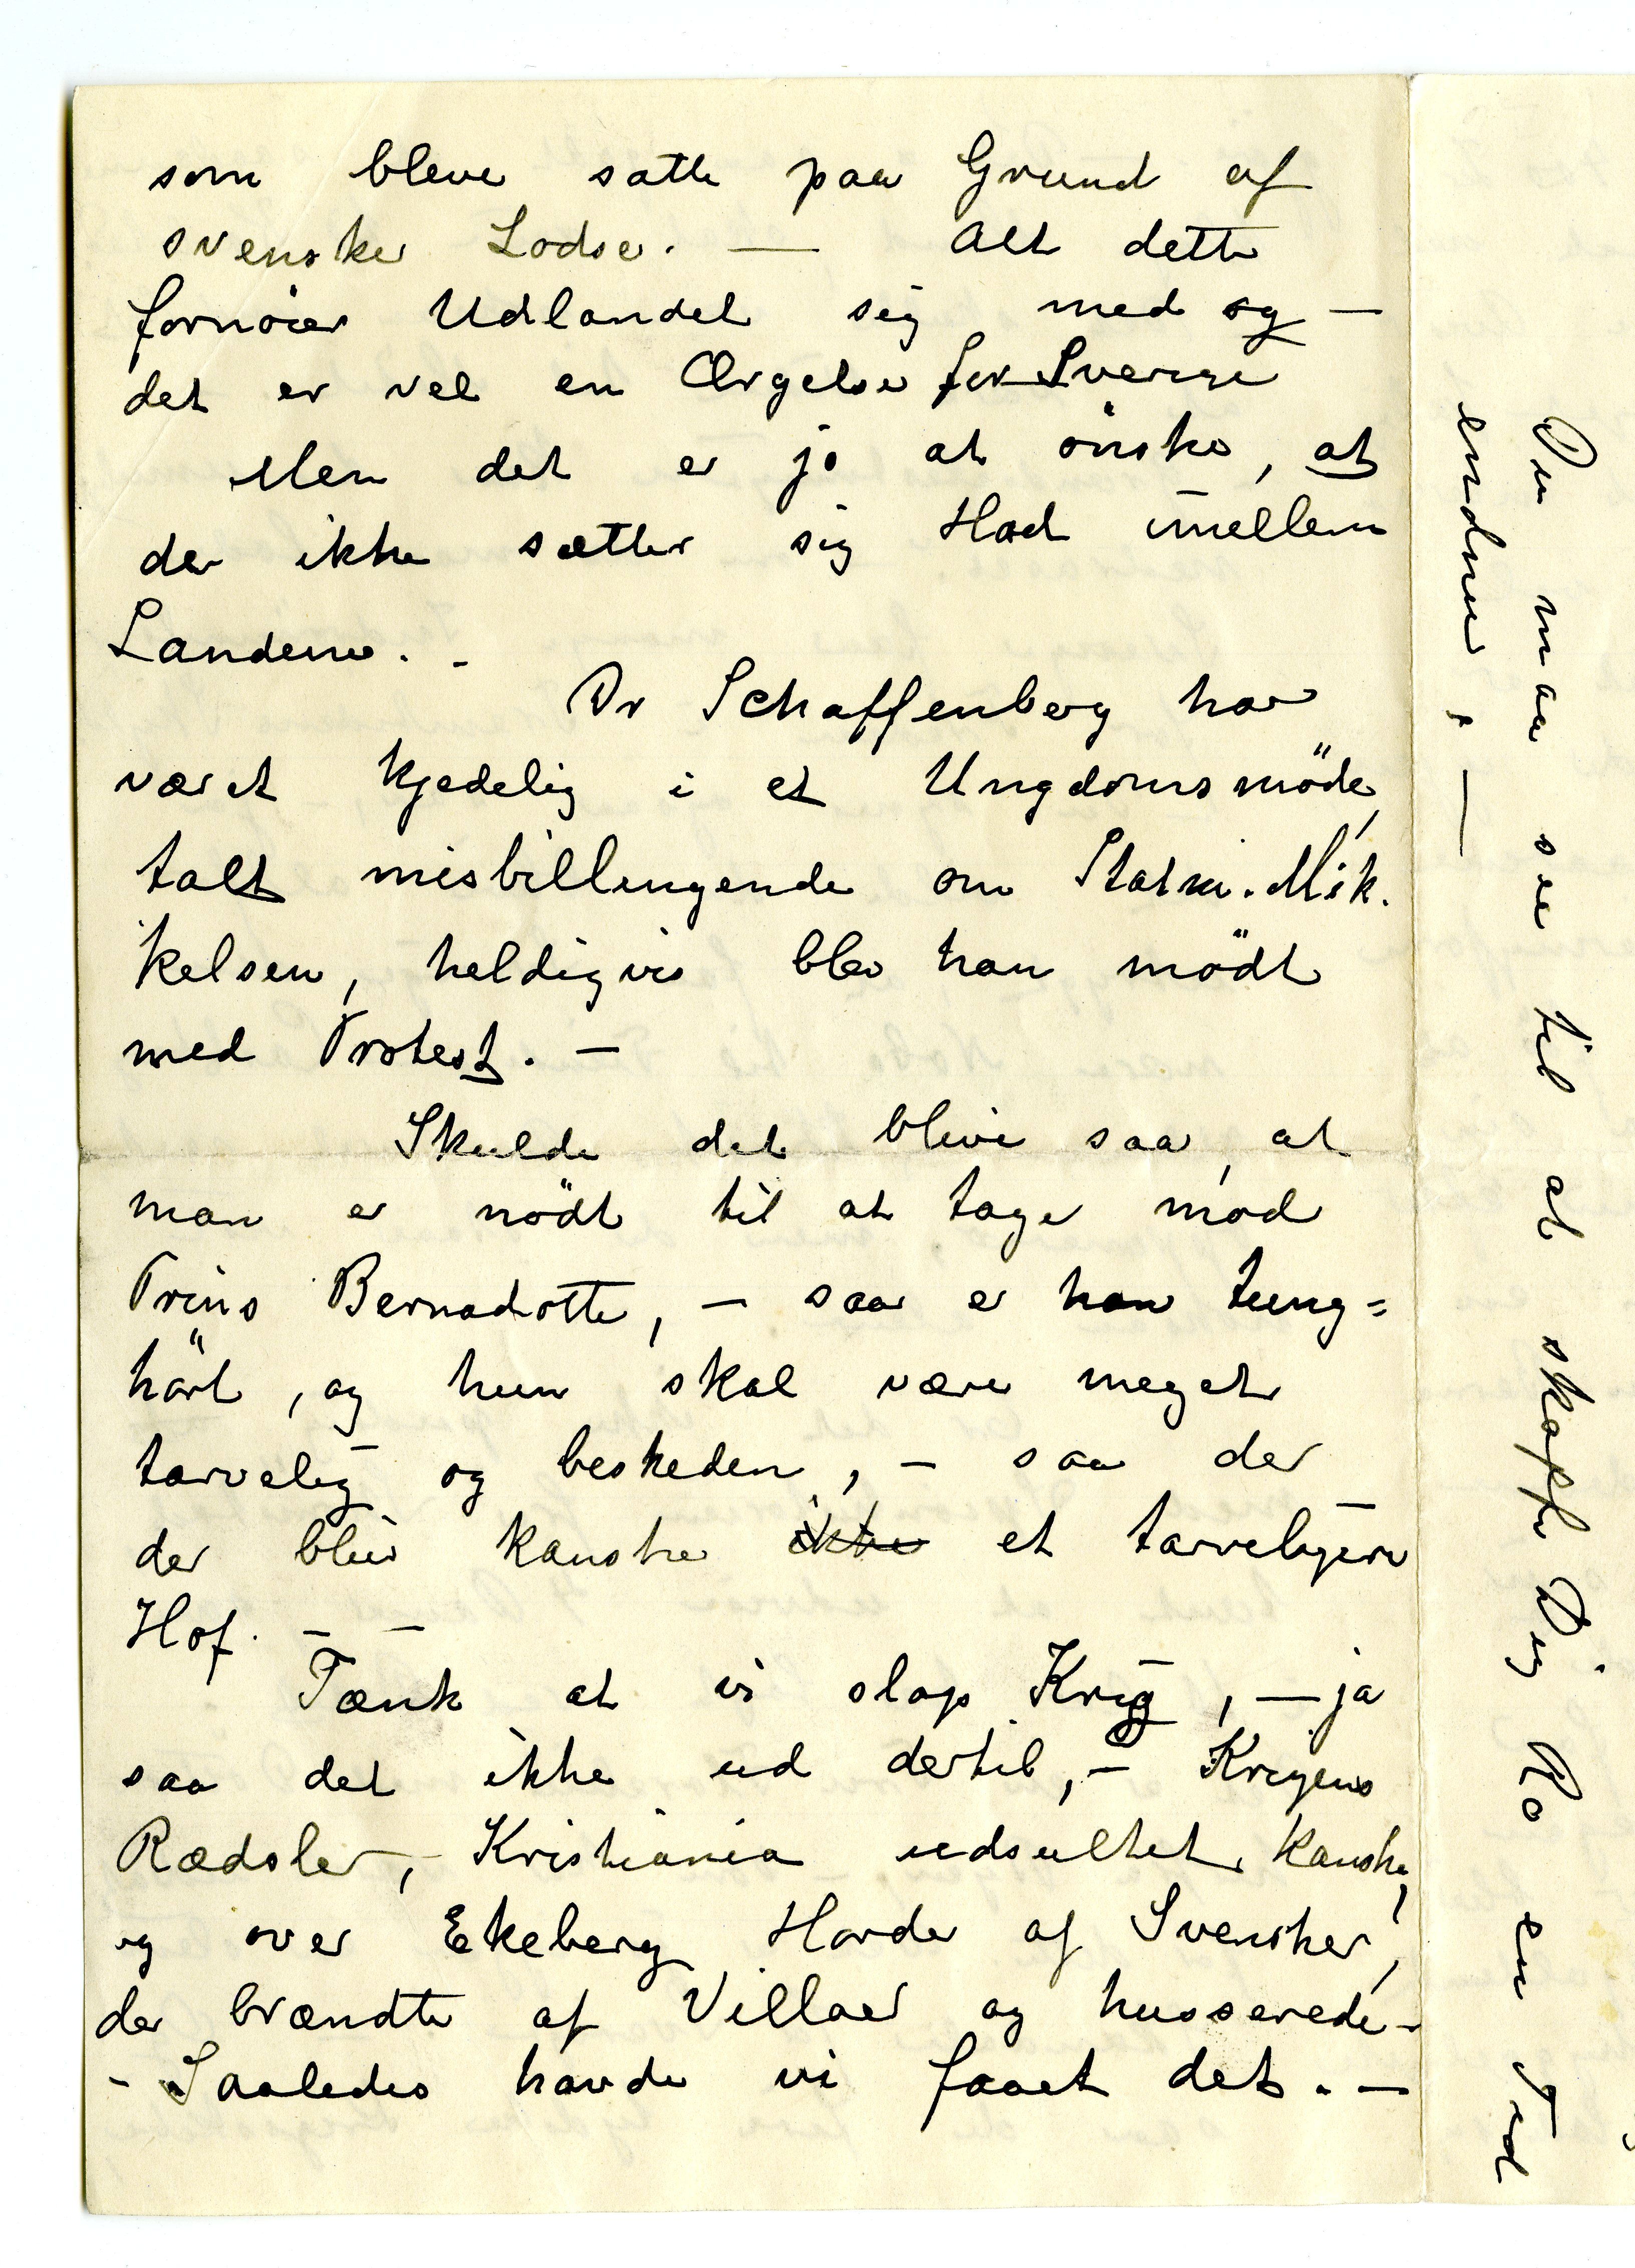 som bleve satte paa Grund af
svenske Lodse. — Alt dette
fornöier Udlandet sig med og —
det er vel en Ærgelse for Sverige
Men det er jo at önske, at
der ikke sætter sig Had imellem
Landene. -
Dr Scharffenberg har
været kjedelig i et Ungdomsmöde,
talt misbilligende om Statm. Mik.
kelsen, heldigvis blev han mödt
med Protest. —
Skulde det blive saa, at
man er nödt til at tage mod
Prins Bernadotte, — saa er han tung=
hört, og hun skal være meget
tarvelig og beskeden, — saa der
der bliver kanske ikke et tarveligere
Hof. — —
Tænk at vi slap Krig, — ja
saa det ikke ud dertil, — Krigens
Rædsler, - Kristiania udsultet kanske,
og over Ekeberg Horder af Svensker,
der brændte af Villaer og husserede -
- Saaledes havde vi faaet det. —
Du maa se til at skaffe Dig Ro en Tid
endnu, —